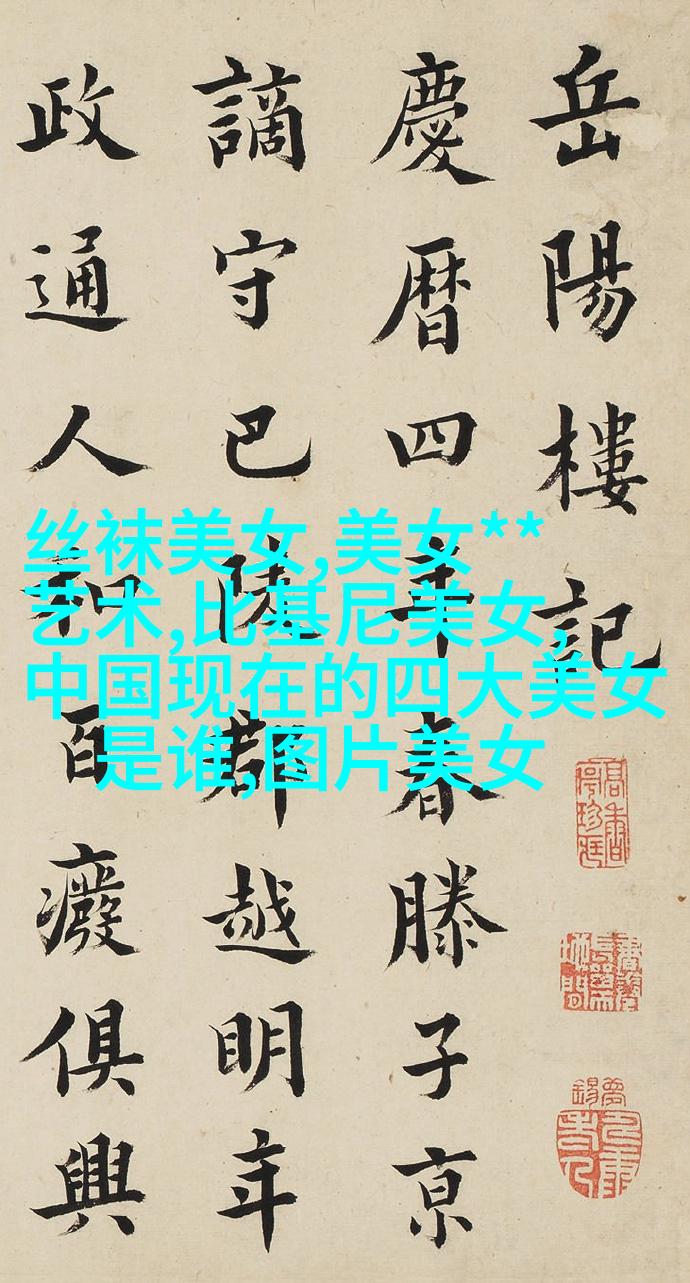 岳陽樓記
慶曆四年春滕子京
謫守巴陵郡越明年
政通人和百癈俱興
丝袜美女,美女**
艺术,比基尼美女,
中国现在的四大美女
是谁,图片美女